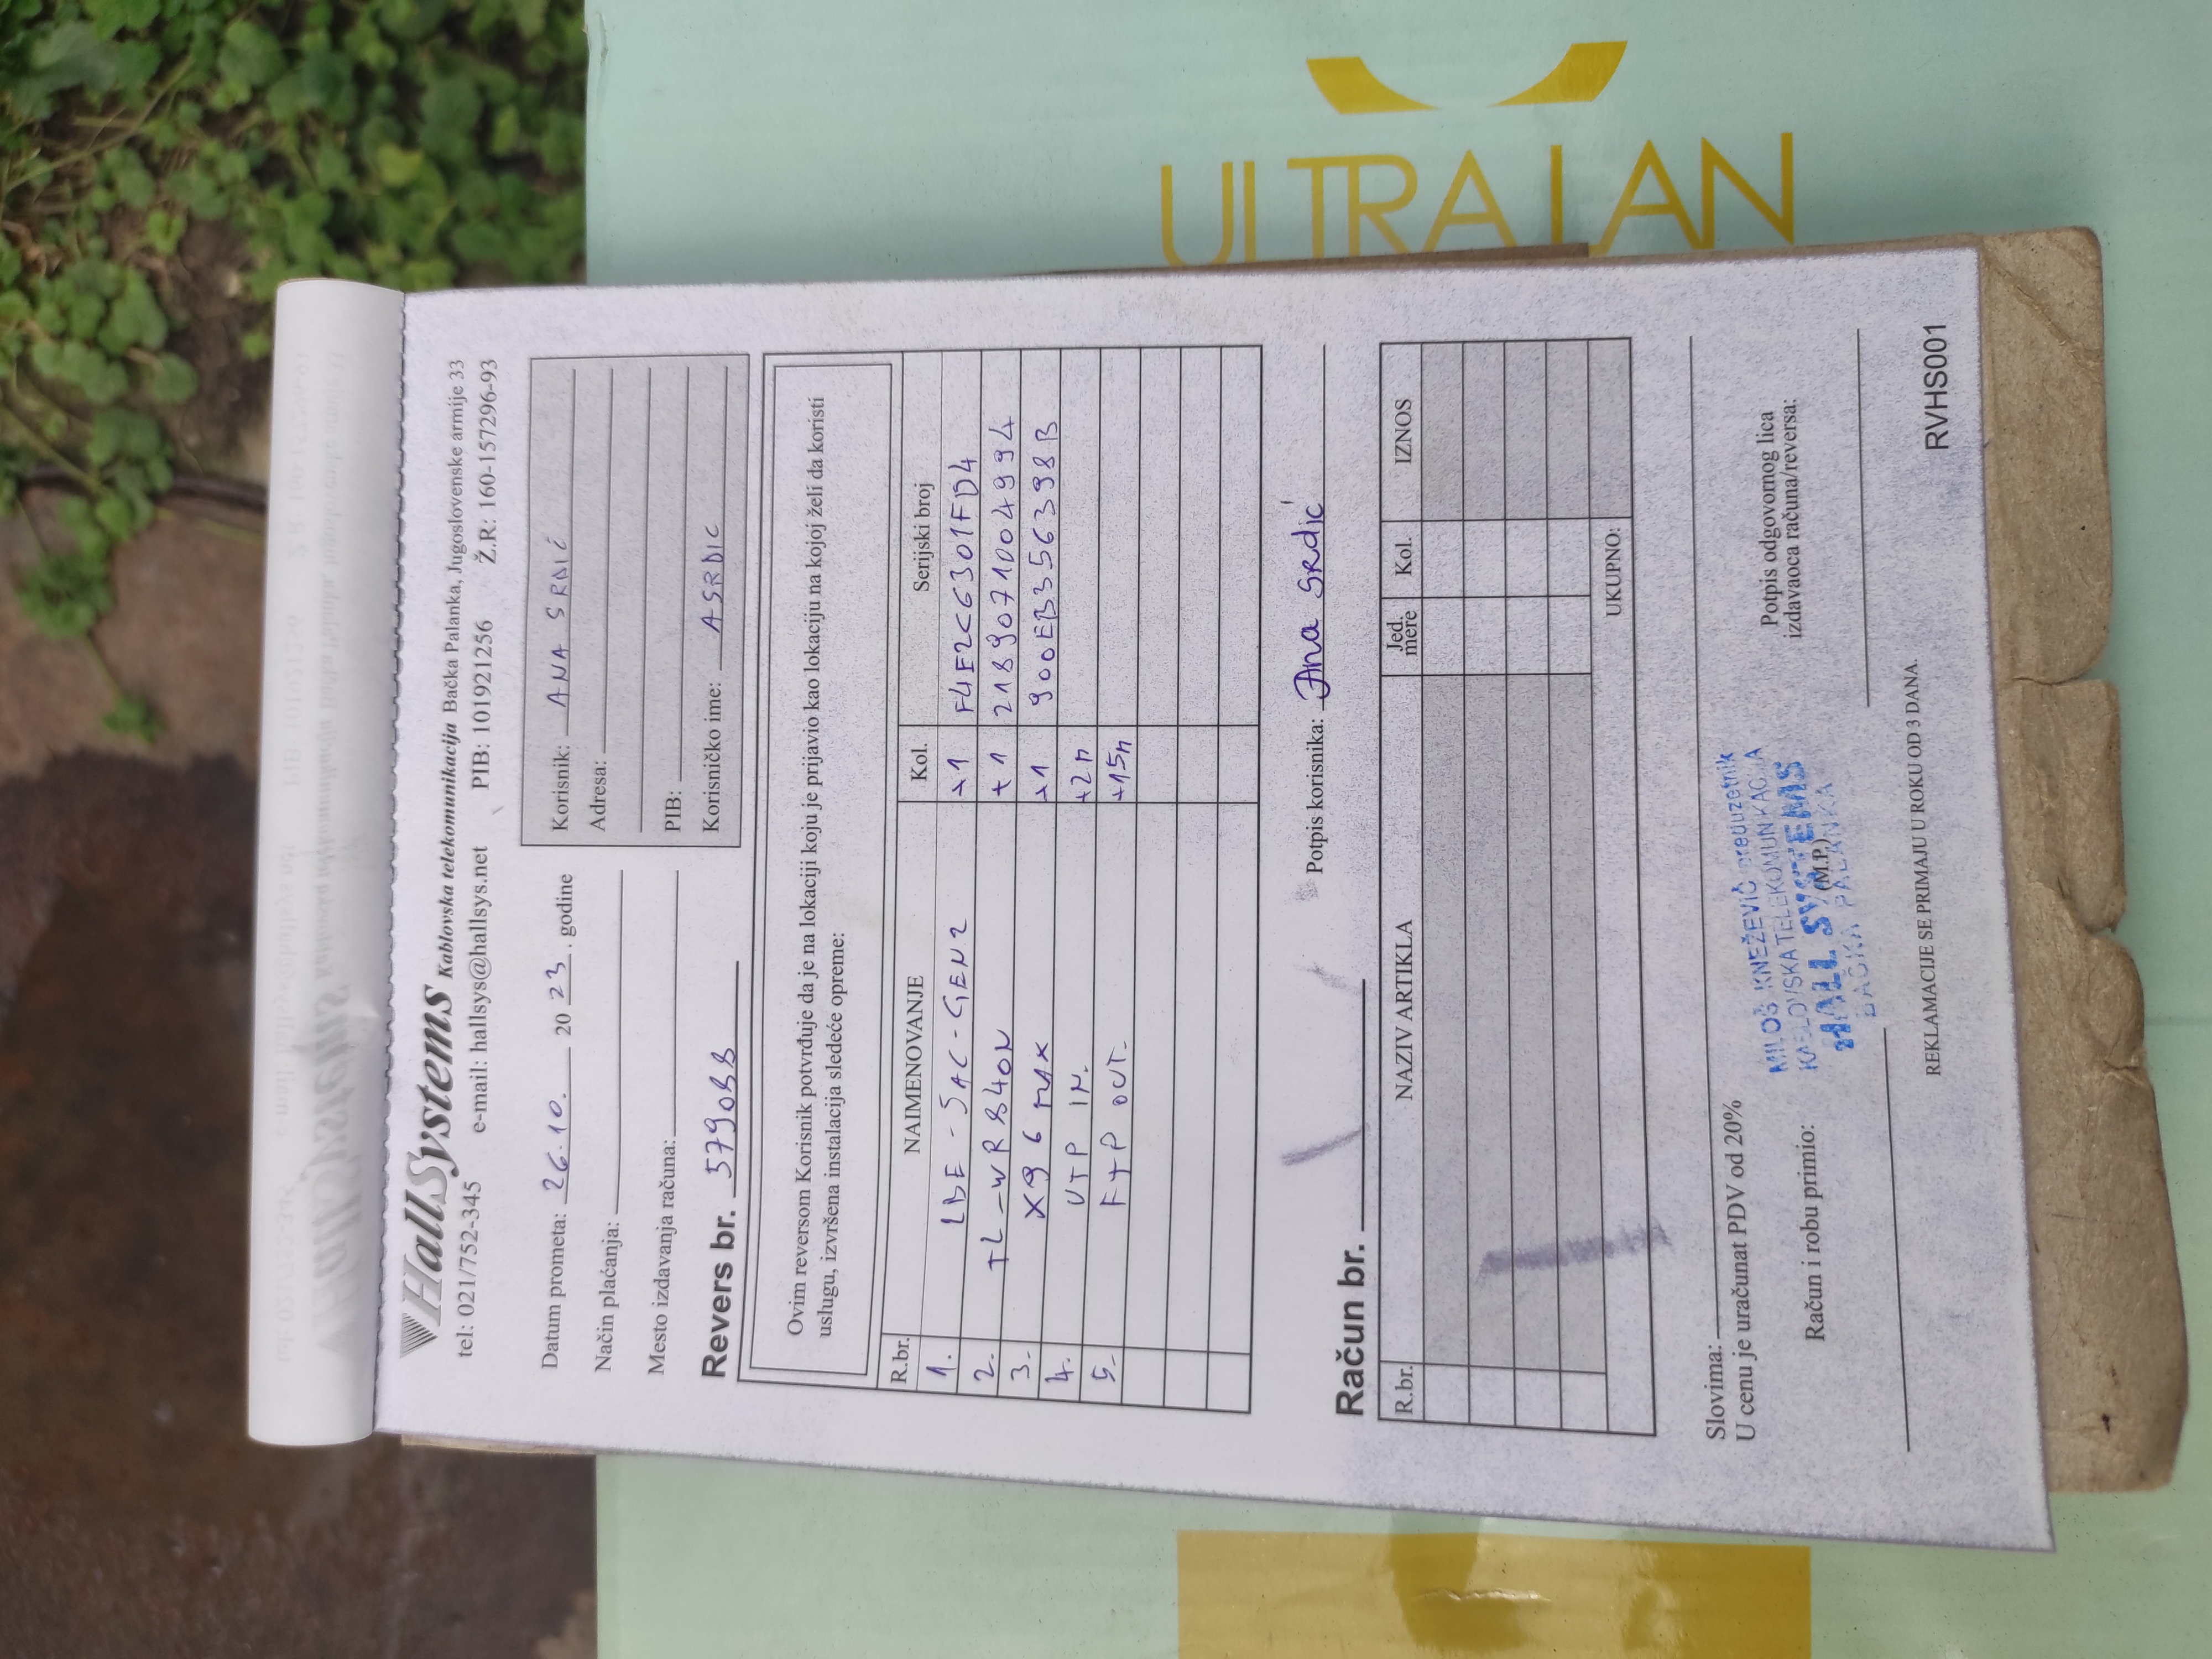 HallSystems Kablovska telekomunikacija Bačka Palanka, Jugoslovenske armije 33
tel: 021/752-345 e-mail: hallsys@hallsys.net PIB: 101921256 Ž.R: 160-157296-93
Datum prometa: 26.10. 20 23. godine
Način plaćanja:
Mesto izdavanja računa:
Revers br. 579088
Korisnik: ANA SRDIĆ
Adresa:
PIB:
Korisničko ime: ASRDIC
Ovim reversom Korisnik potvrđuje da je na lokaciji koju je prijavio kao lokaciju na kojoj želi da koristi
uslugu, izvršena instalacija sledeće opreme:
R.br. NAIMENOVANJE Kol. Serijski broj
1. LBE-5AC-GEN2 +1 F4E2C6301FD4
2. TL-WR840N +1 2189071004994
3. X96 MAX +1 900EB356398B
4. UTP IN. +2m
5. FTP OUT. +15m
Potpis korisnika: Ana Srdić
Račun br.
R.br. NAZIV ARTIKLA Jed. mere Kol. IZNOS
UKUPNO:
Slovima:
U cenu je uračunat PDV od 20%
Račun i robu primio:
MILOŠ KNEŽEVIĆ preduzetnik
KABLOVSKA TELEKOMUNIKACIJA
HALL SYSTEMS
(M.P.)
BAČKA PALANKA
Potpis odgovornog lica
izdavaoca računa/reversa:
REKLAMACIJE SE PRIMAJU U ROKU OD 3 DANA.
RVHS001
ULTRA LAN